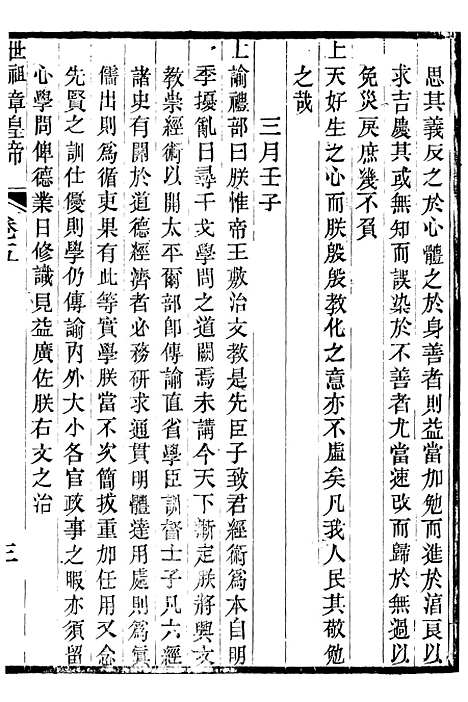 思其義反之於心體之於身善者則益當加勉而進於淳良以
求吉慶其或無知而誤染於不善者尤當速改而歸於無過以
免災戾庶幾不負
上天好生之心而朕殷殷教化之意亦不虛矣凡我人民其敬勉
之哉
三月壬子
上諭禮部曰朕惟帝王敷治文教是先臣子致君經術為本自明
季擾亂日尋干戈學問之道闕焉未講今天下漸定朕將興文
教崇經術以開太平爾部卽傳諭直省學臣訓督士子凡六經
諸史有關於道德經濟者必務研求通貫明體達用處則為眞
儒出則為循吏果有此等實學朕當不次簡拔重加任用又念
先賢之訓仕優則學仍傳諭內外大小各官政事之暇亦須留
心學問俾德業日修識見益廣佐朕右文之治
世祖章皇帝 卷五 三